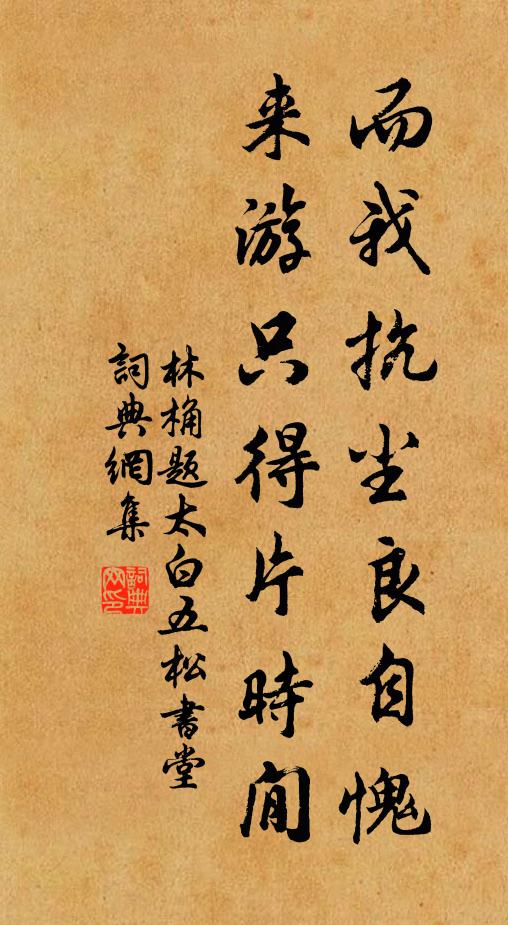 而我抗尘良自愧
来游只得片時間
林桷题太白五松書堂
詞典網集
詞典网印